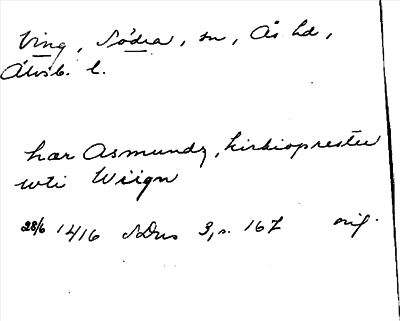 Ving, Södra, sn, Ås hd,
Älvsb. l.
har Asmundz, kirkioprester
vti Wiign
28/6 1416 SDns 3, s. 167 orig.